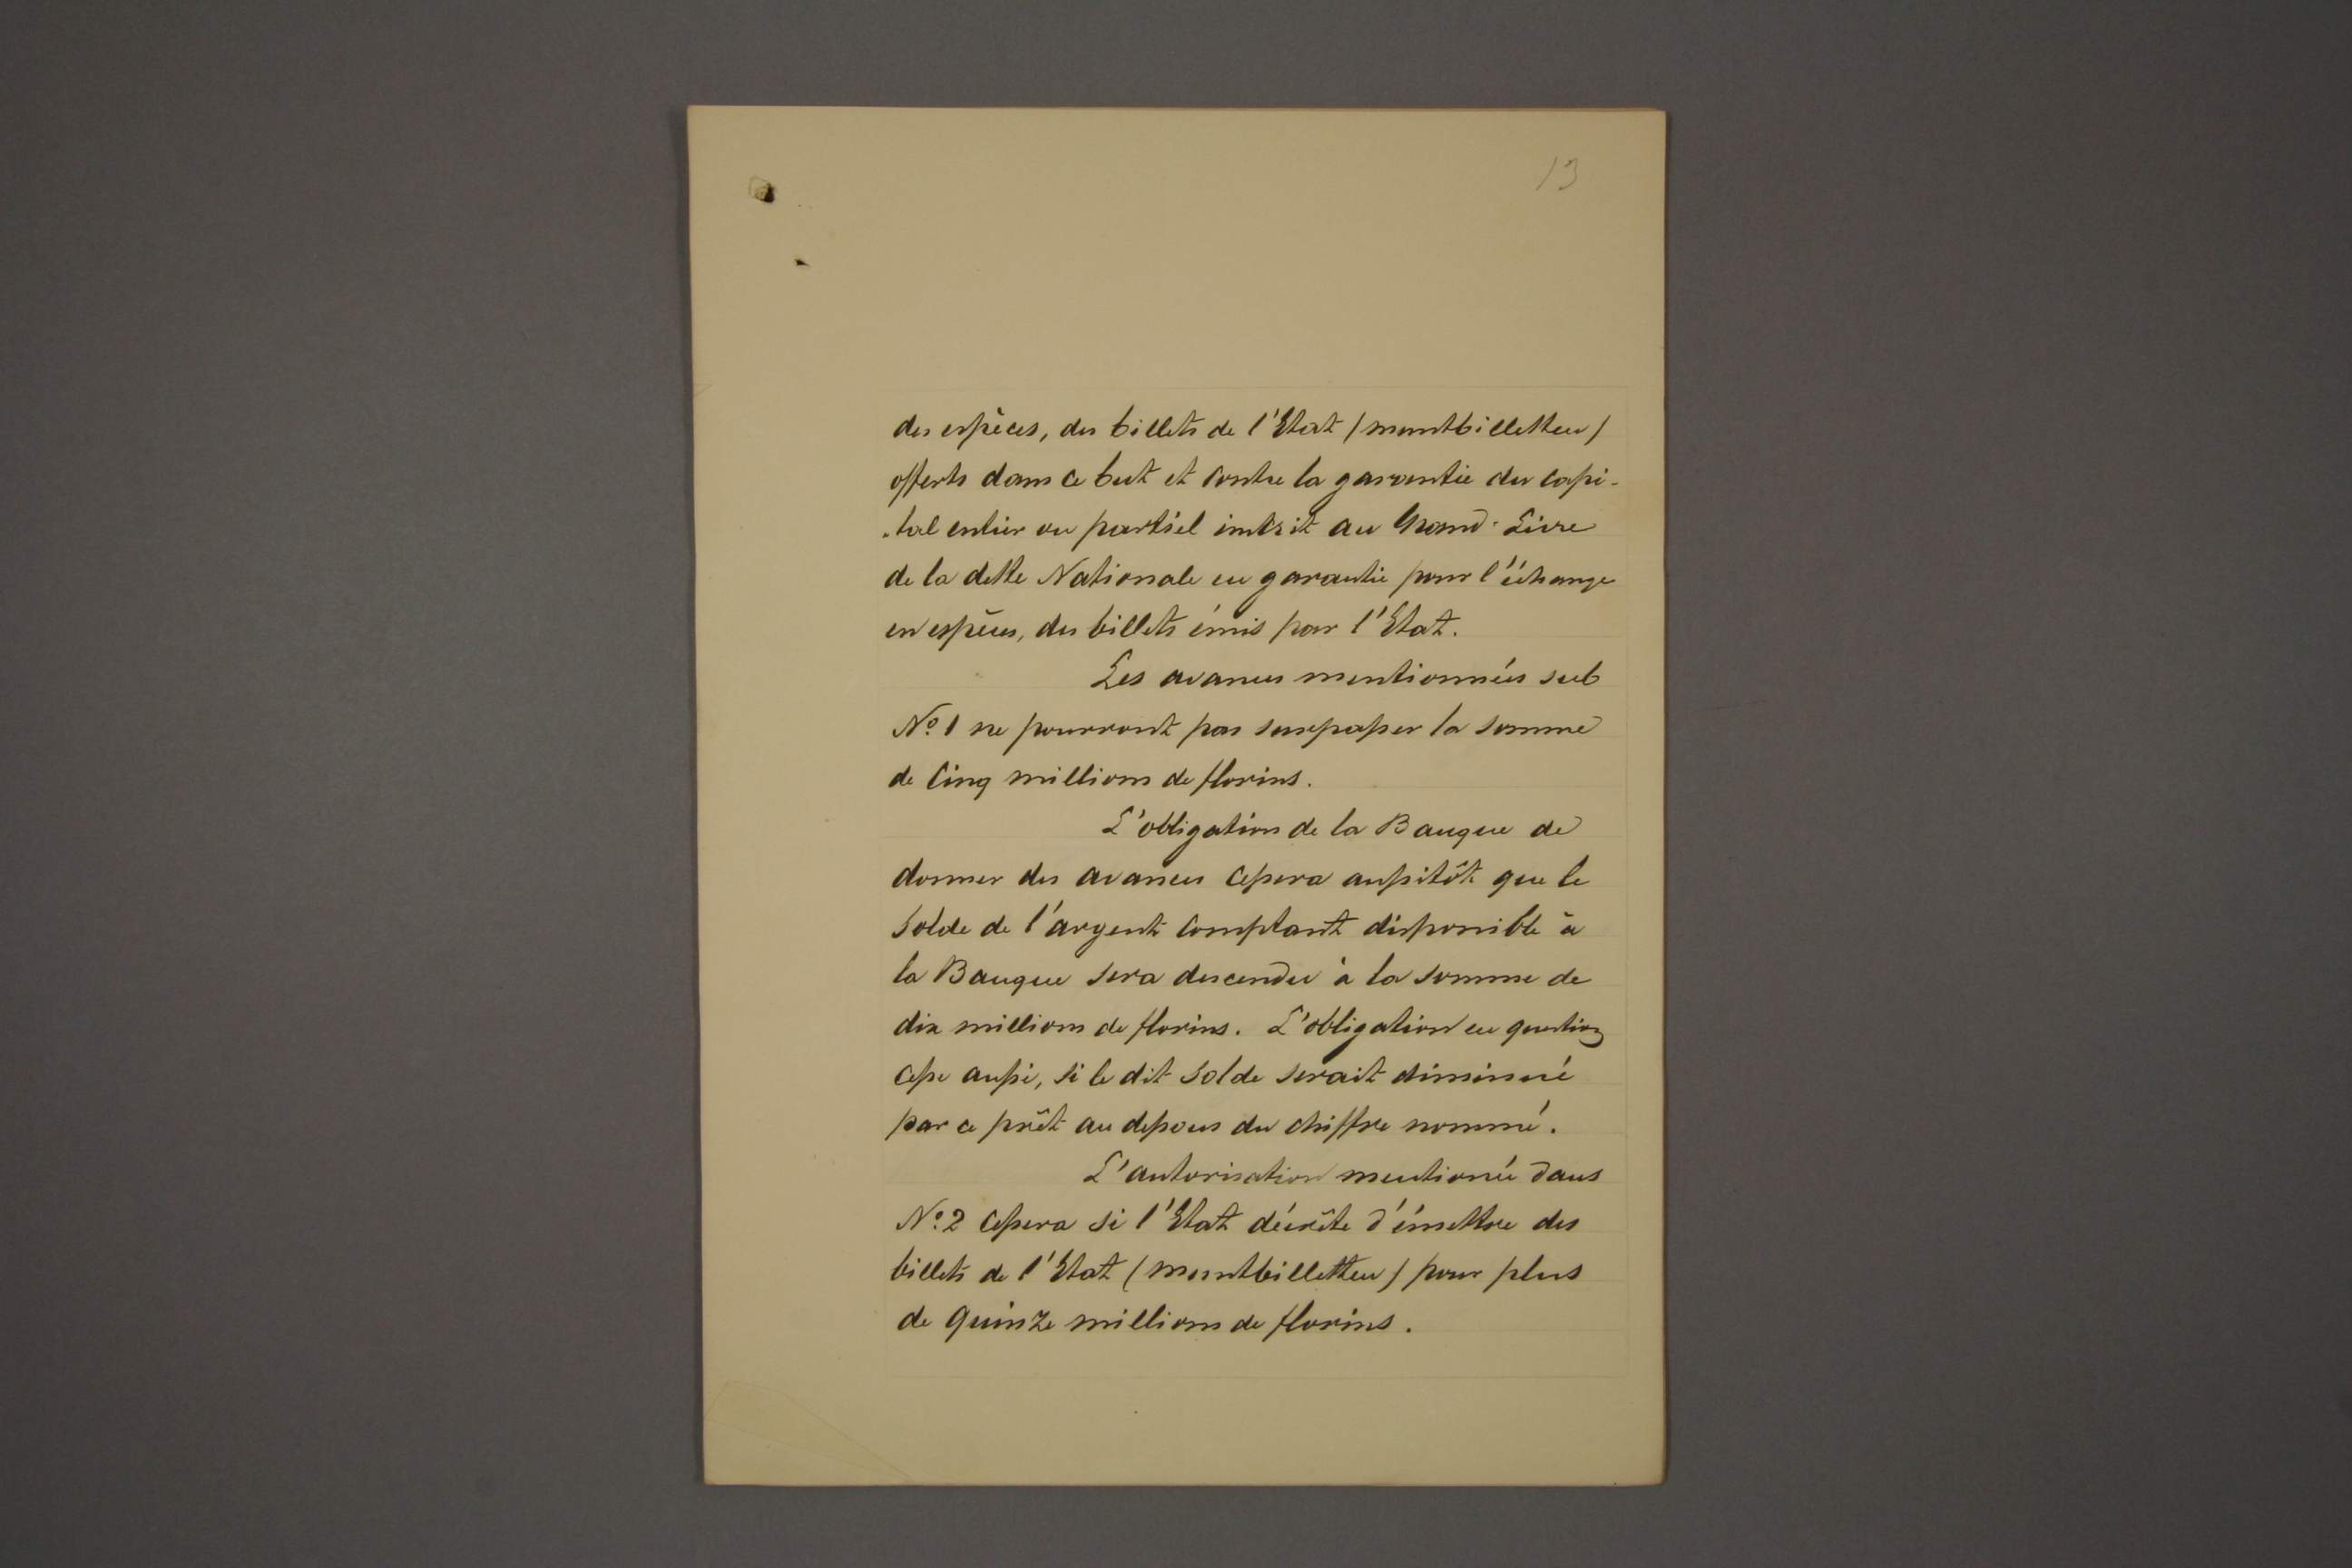 13
des espèces, des billets de l'Etat (muntbilletten)
offerts dans ce but et contre la garantie du capi-
-tal entier ou partiel inscrit au Grand-Livre
de la dette Nationale en garantie pour l'échange
en espèces, des billets émis par l'Etat.
Les avances mentionnées sub
No. 1 ne pourront pas surpasser la somme
de Cinq millions de florins.
L'obligation de la Banque de
donner des avances cessera aussitôt que le
solde de l'argent comptant disponible à
la Banque sera descendu à la somme de
dix millions de florins. L'obligation en question
cesse aussi, si le dit solde serait diminué
par ce prêt au dessous du chiffre nommé.
L'autorisation mentionée dans
No. 2 cessera si l'Etat décrète d'émettre des
billets de l'Etat (muntbilletten) pour plus
de quinze millions de florins.